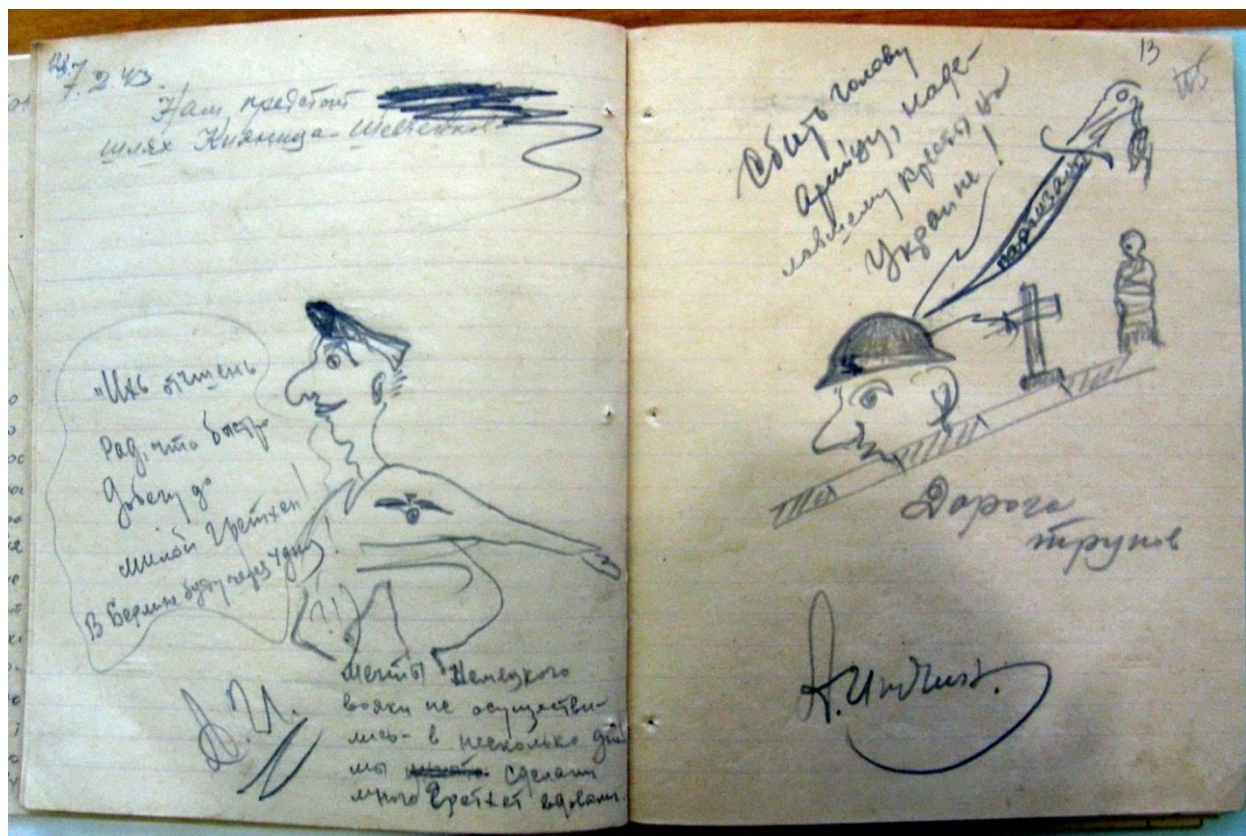 7.2.43.
Нам предстоит
шлях Кияница-Шевченково
"Ихь отчшень
Рад, что быстро
добегу до
милой Гретхен!
В Берлине буду через 4 дня!
(?!)
А.И.
Мечты Немецкого
вояки не осуществи-
лись - в несколько дней
мы сделали
много Гретхет вдовами.
13
Сбить голову
Арийцу, наде-
лавшему кресты на
Украине!
партизаны
Дорога
трупов